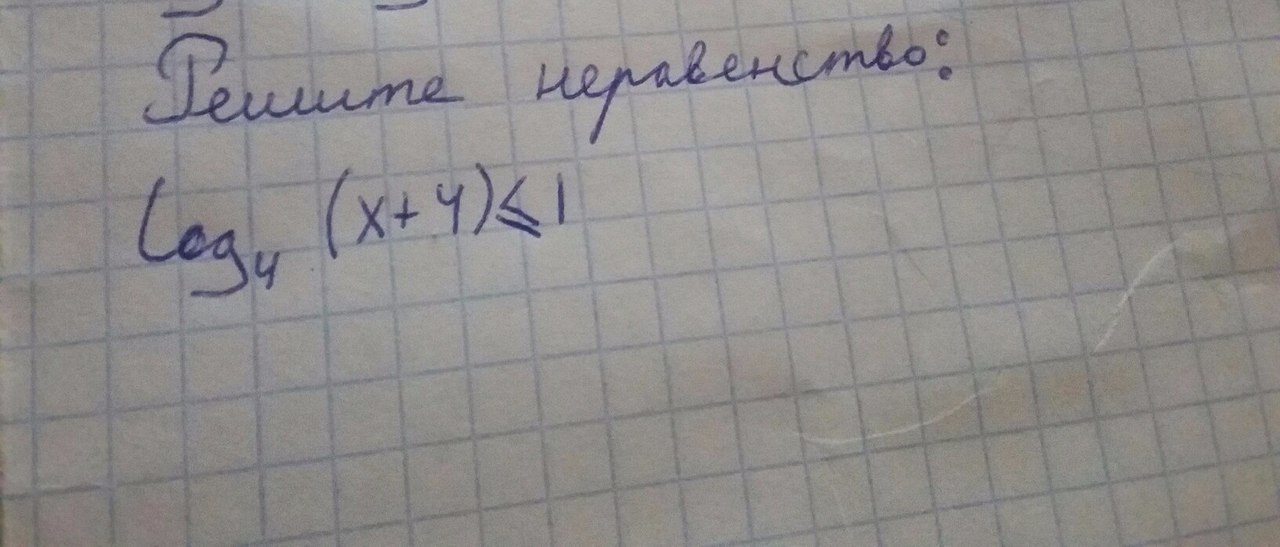 Решите неравенство:
log₄ (x+4)⩽1